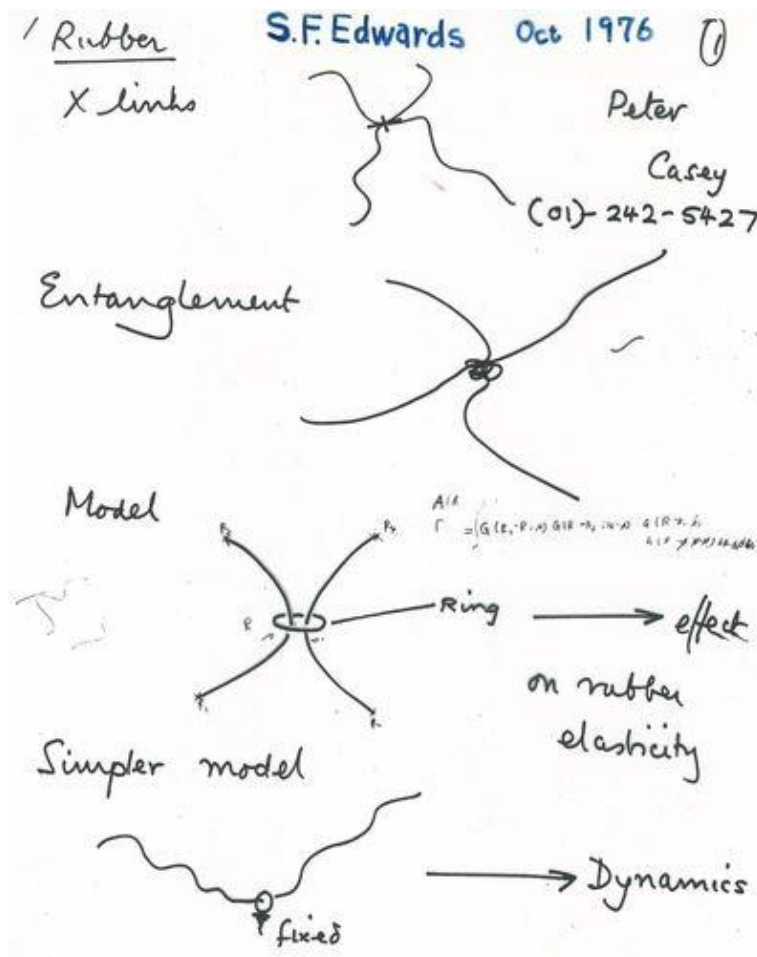 Rubber S.F. Edwards Oct 1976 1
X links Peter
Casey
(01)-242-5427
Entanglement
Model
R
Ring → effect
on rubber
elasticity
Simpler model
→ Dynamics
fixed